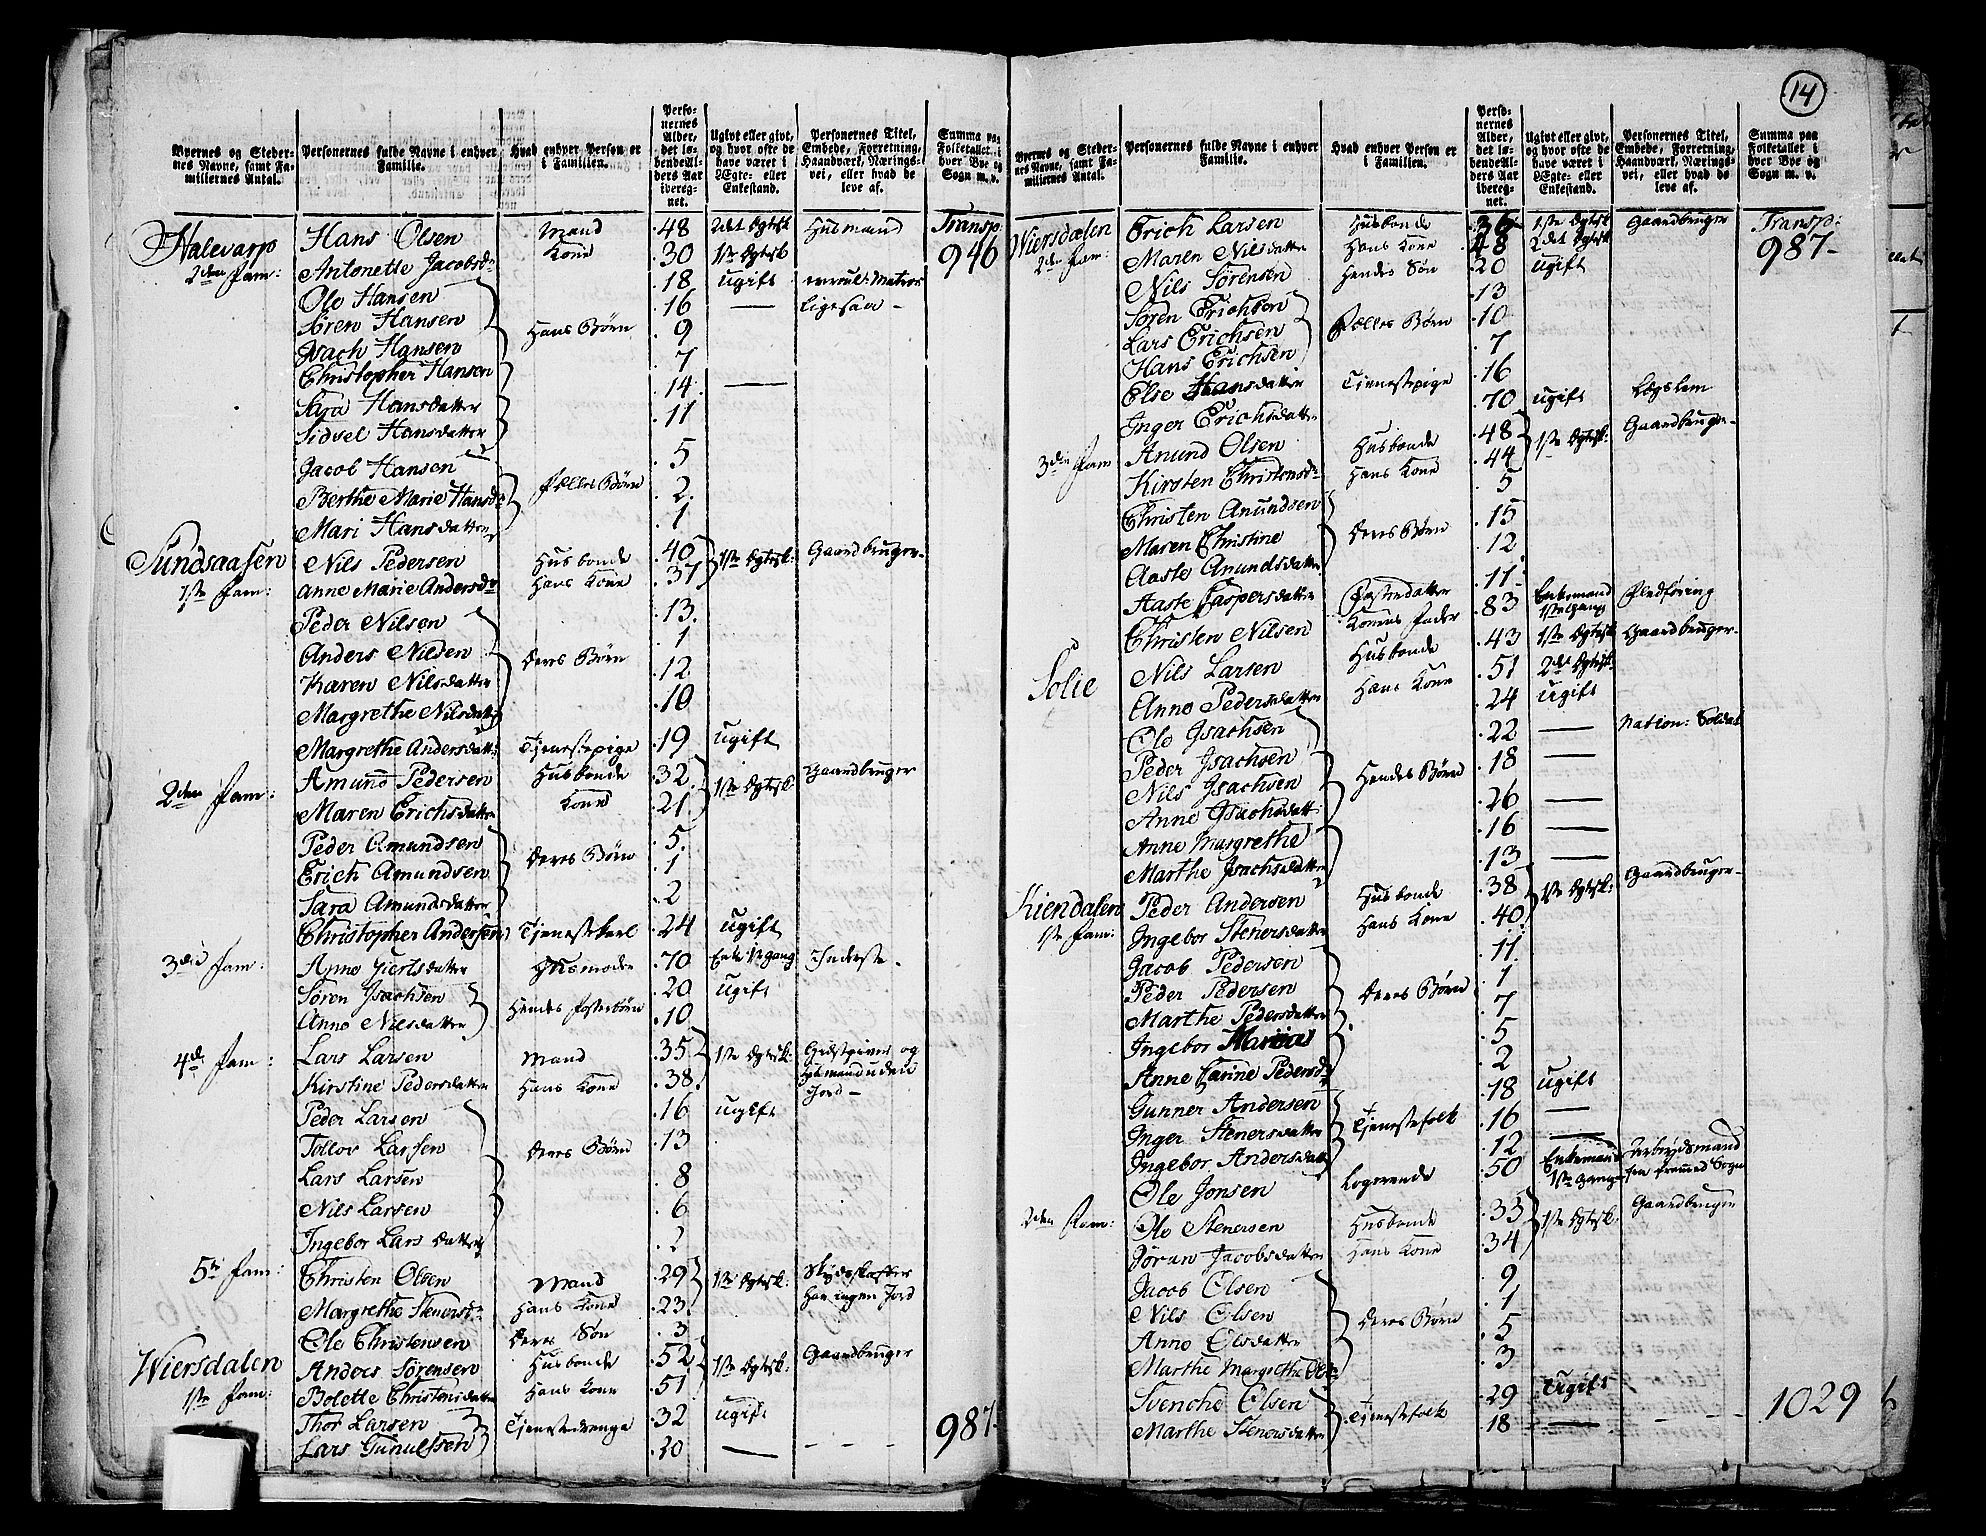 14
Byernes og Steder-
nes Navne, samt Fa-
miliernes Antal.
Personernes fulde Navne i enhver
Familie.
Hvad enhver Person er
i Familien.
Perso-
nernes
Alder,
det lø-
bende Al-
ders Aar
ibereg-
net.
Ugivt eller givt,
og hvor ofte de
have været i
Ægte- eller
Enkestand.
Personernes Titel,
Embede, Forretning,
Haandværk, Nærings-
vei, eller hvad de
leve af.
Summa paa
Folketallet i
hver Bye og
Sogn m. v.
Nalevarp Hans Olsen Mand 48 2det Egtesk Husmand Transp:
2den Fam: Antonette Jacobsdr Kone 30 1ste Egtesk 946
Ole Hansen 18 ugift Matros
Søren Hansen 16 — ligesaa -
Isach Hansen Hans Børn 9
Christopher Hansen 7
Sara Hansdatter 14 —
Sidsel Hansdatter 11
Jacob Hansen 5
Berthe Marie Hansdr Fælles Børn 2
Mari Hansdatter 1
Sundsaasen Nils Pedersen Husbonde 40 1ste Egtesk: Gaardbruger
1ste Fam: Anne Marie Andersdr Hans Kone 37
Peder Nilsen 13
Anders Nilsen 1
Karen Nilsdatter Deres Børn 12
Margrethe Nilsdatter 10
Margrethe Andersdatt: Tjenestepige 19 ugift
2den Fam: Amund Pedersen Husbonde 32 1ste Egtesk Gaardbruger
Maren Erichsdatter Kone 21
Peder Amundsen 5
Erich Amundsen Deres Børn 1
Sara Amundsdatter 2
Christopher Andersen Tjenestekarl 24 ugift
3die Fam: Anne Giertsdatter Husmoder 70 Enke 1te gang Inderste
Søren Isachsen 20 ugift
Anne Nilsdatter Hendes Fosterbørn 10
4de Fam: Lars Larsen Mand 35 1ste Egtesk: Giestgiver og
Kirstine Pedersdatter Hans Kone 38 Husmand uden
Peder Larsen 16 ugift Jord -
Tollov Larsen Deres Børn 13
Lars Larsen 8
Nils Larsen 6
Ingebor Lars datter 2
5te Fam: Christen Olsen Mand 29 1ste Egtesk:
Margrethe Stenersdr Hans Kone 23 har ingen Jord
Ole Christensen Deres Søn 3
Wiersdalen Anders Sørensen Husbonde 52 1ste Egtesk: Gaardbruger
1ste Fam: Bolette Christensdatter Hans Kone 51
Thor Larsen Tjenestedrenge 32 ugift
Lars Gunulfsen 20 — 987
Byernes og Steder-
nes Navne, samt Fa-
miliernes Antal.
Personernes fulde Navne i enhver
Familie.
Hvad enhver Person er
i Familien.
Perso-
nernes
Alder,
det lø-
bende Al-
ders Aar
ibereg-
net.
Ugivt eller givt,
og hvor ofte de
have været i
Ægte- eller
Enkestand.
Personernes Titel,
Embede, Forretning,
Haandværk, Nærings-
vei, eller hvad de
leve af.
Summa paa
Folketallet i
hver Bye og
Sogn m. v.
Wiersdalen Erich Larsen Husbonde 36 1ste Egtesk Gaardbruger Transp:
2den Fam: Maren Nilsdatter Hans Kone 48 2det Egtesk 987
Nils Sørensen Hendes Søn 20 ugift
Søren Erichsen 13
Lars Erichsen Fælles Børn 10
Hans Erichsen 7
Else Hansdatter Tjenestepige 16
Inger Erichsdatter 70 ugift Lægslem
3die Fam Anund Olsen Husbonde 48 1ste Egtesk: Gaardbruger
Kirsten Christensdr Hans Kone 44
Christen Anundsen 5
Maren Christine Deres Børn 15
Aaste Anundsdatter 12
Aaste Jaspersdatter Fosterdatter 11
Christen Nilsen Konens Fader 83 Enkemand 1ste gang Fledføring
Solie Nils Larsen Husbonde 43 1ste Egtesk Gaardbruger
Anne Pedersdatter Hans Kone 51 2det Egtesk
Ole Isachsen 24 ugift
Peder Isachsen 22 — Nation: Soldat
Nils Isachsen Hendes Børn 18 —
Anne Isachsdatt: 26 —
Anne Margrethe 16 —
Marthe Isachsdatter 13 —
Kiendalen Peder Andersen Husbonde 38 1ste Egtesk: Gaardbruger
1ste Fam: Ingebor Stenersdatter Hans Kone 40
Jacob Pedersen 11
Peder Pedersen 1
Marthe Pedersdatter Deres Børn 7
Ingebor Maria 5
Anne Carine Pedersdr 2
Gunner Andersen 18 ugift
Inger Stenersdatter Tjenestefolk 16 —
Ingebor Andersdatter 12 —
Ole Jonsen Logerende 50 Enkemand 1ste gang Arbeydsmand fra fremmed Sogn
2den Fam: Ole Stenersen Husbonde 33 1ste Egtesk: Gaardbruger
Jøran Jacobsdatter Hans Kone 34
Jacob Olsen 9
Nils Olsen Deres Børn 1
Anne Olsdatter 5
Marthe Margrethe 3
Svenche Olsen Tjenestefolk 29 ugift
Marthe Stenersdatter 18 — 1029